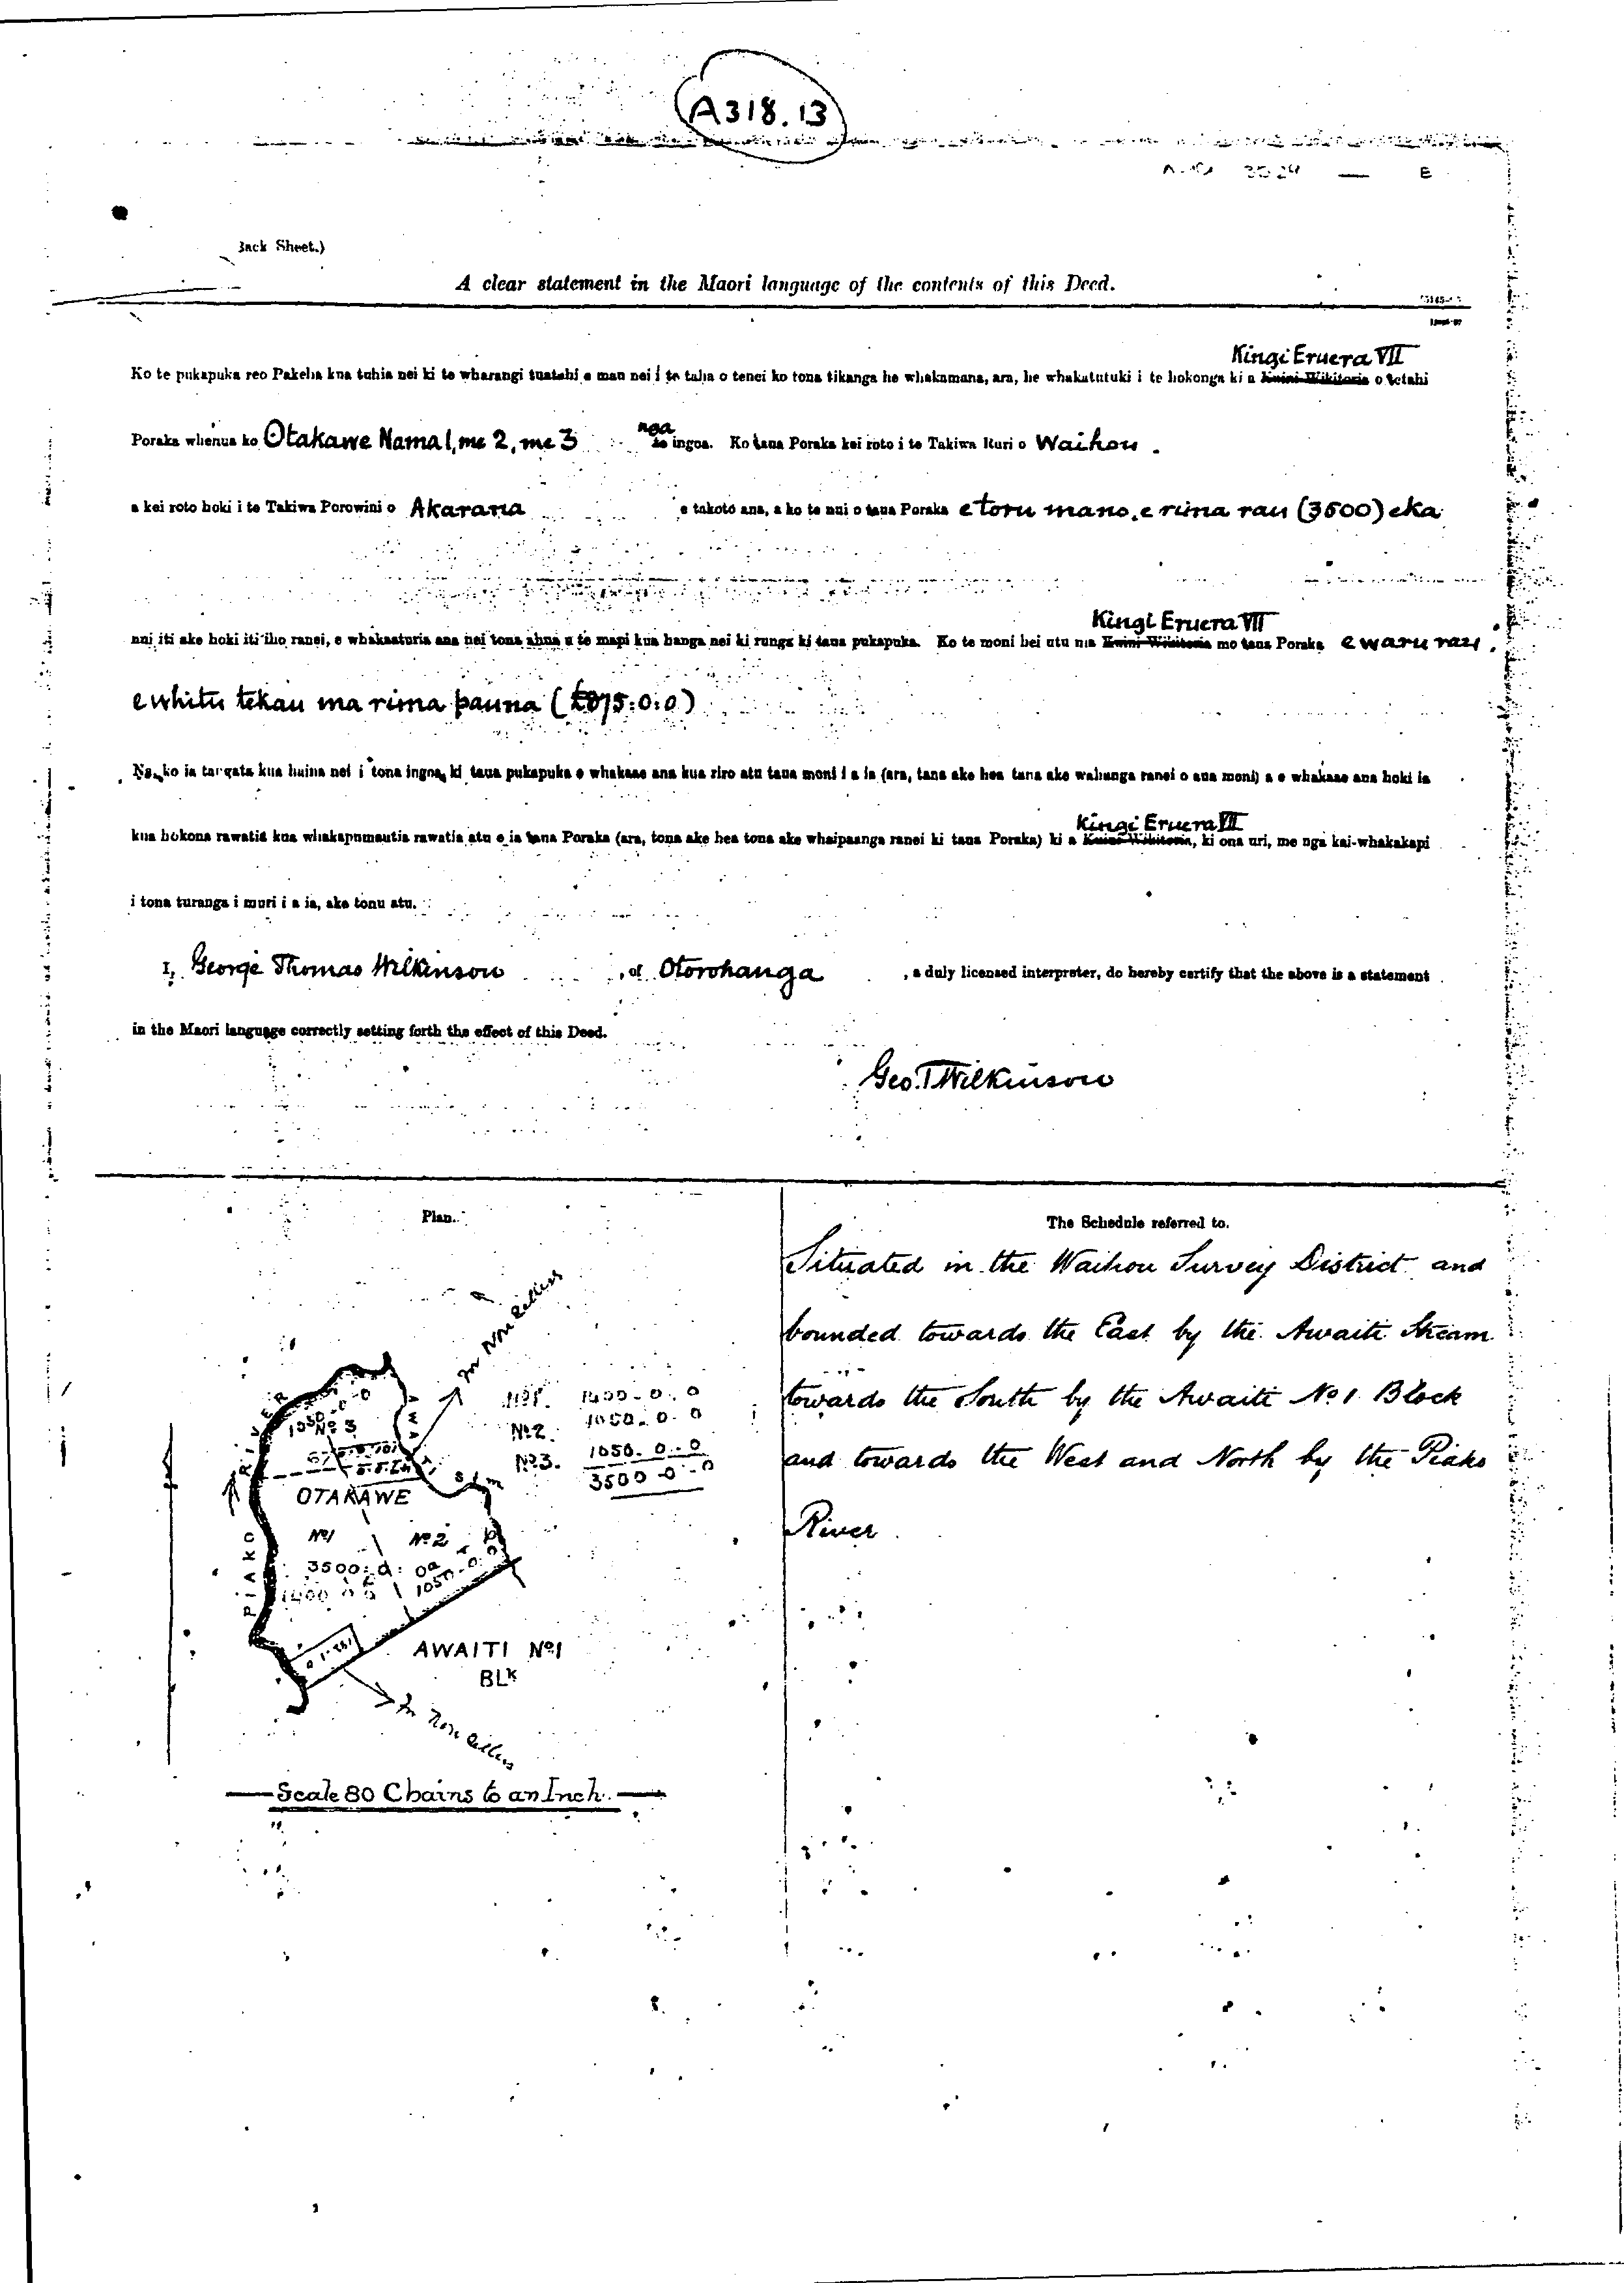 A318.13
Back Sheet.)
A clear statement in the Maori language of the contents of this Deed.
Kingi Eruera VII
Ko te pukapuka reo Pakeha kua tuhia nei ki te wharangi tuatahi e mau nei i te taha o tenei ko tona tikanga he whakamana, ara, he whakatutuki i te hokonga ki a Kuini Wikitoria o tetahi
Poraka whenua ko Otakawe Nama 1, me 2, me 3 nga te ingoa. Ko taua Poraka kei roto i te Takiwa Ruri o Waihou.
a kei roto hoki i te Takiwa Porowini o Akarana e takoto ana, a ko te nui o taua Poraka e toru mano, e rima rau (3500) eka
Kingi Eruera VII
nui iti ake hoki iti iho ranei, e whakaaturia ana nei tona ahua i te mapi kua hanga nei ki runga ki taua pukapuka. Ko te moni hei utu ma Kuini Wikitoria mo taua Poraka e waru rau,
e whitu tekau ma rima pauna (£875:0:0)
Na, ko ia tangata kua huina nei i tona ingoa ki taua pukapuka e whakaae ana kua riro atu taua moni i a ia (ara, tana ake hea tana ake wahanga ranei o aua moni) a e whakaae ana hoki ia
Kingi Eruera VII
kua hokona rawatia kua whakapumautia rawatia atu e ia taua Poraka (ara, tona ake hea tona ake whaipaanga ranei ki taua Poraka) ki a Kuini Wikitoria, ki ona uri, me nga kai-whakakapi
i tona turanga i muri i a ia, ake tonu atu.
I, George Thomas Wilkinson, of Otorohanga, a duly licensed interpreter, do hereby certify that the above is a statement
in the Maori language correctly setting forth the effect of this Deed.
Geo. T Wilkinson
Plan.
to Non Sellers
No 1. 1400-0-0
No 2. 1050.0.0
No 3. 1050.0.0
3500-0-0
No 3
OTAKAWE
No 1
No 2
3500:0:00
1400
1050.0.0
PIAKO
AWAITI No 1
BLK
to Non Sellers
Scale 80 Chains to an Inch.
The Schedule referred to.
Situated in the Waihou Survey District and
bounded towards the East by the Awaiti Stream
towards the South by the Awaiti No 1 Block
and towards the West and North by the Piako
River